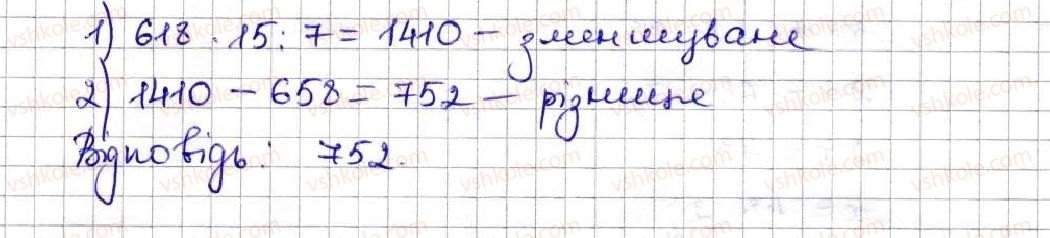 1) 618 · 15 : 7 = 1410 – зменшуване
2) 1410 – 658 = 752 – різниця
Відповідь: 752.